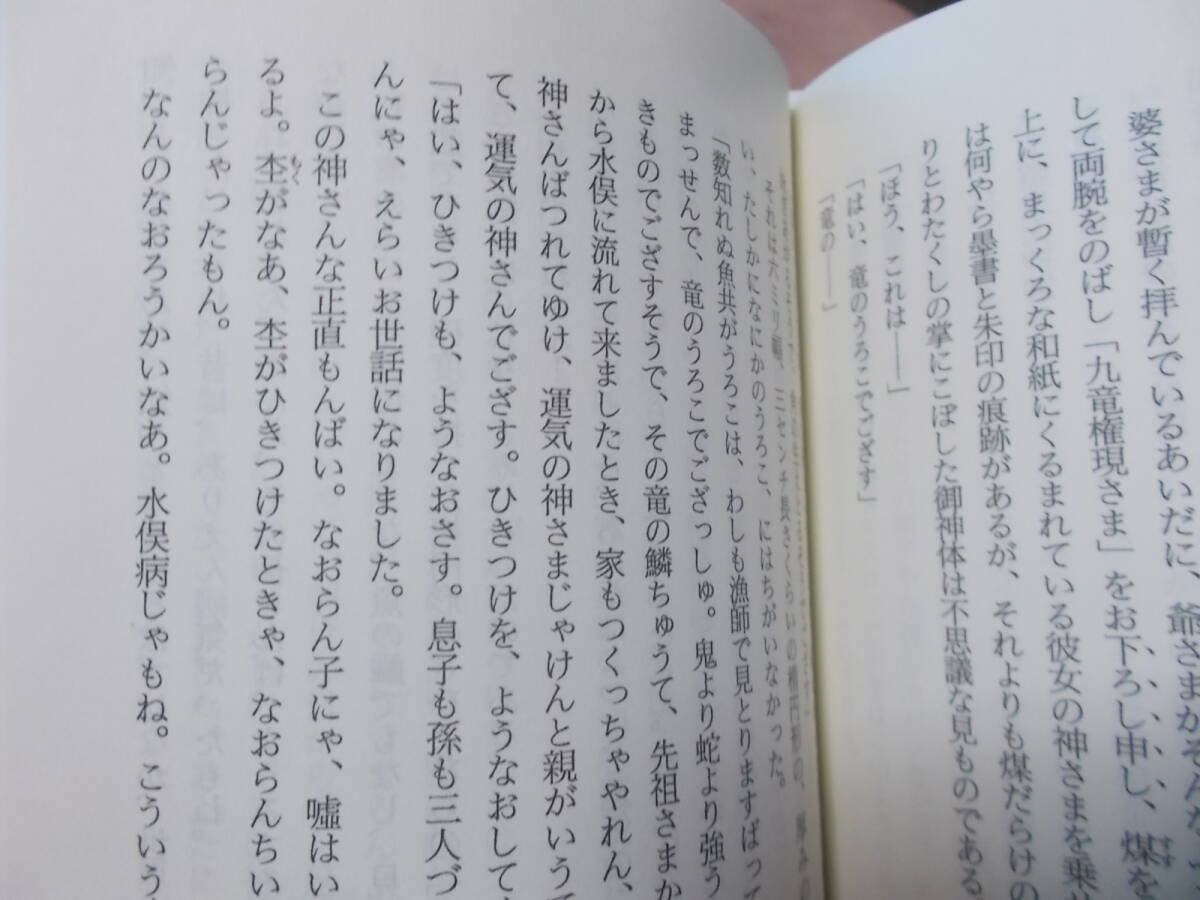 婆さまが暫く拝んでいるあいだに、爺さまが
して両腕をのばし「九竜権現さま」をお下ろし申し、煤を
上に、まっくろな和紙にくるまれている彼女の神さまを乗
は何やら墨書と朱印の痕跡があるが、それよりも煤だらけの
りとわたくしの掌にこぼした御神体は不思議な見ものである
「ほう、これは――」
「はい、竜のうろこでござす」
「竜の――」
それは六ミリ幅、三センチ長さくらいの楕円形の、厚みの
い、たしかになにかのうろこ、にはちがいなかった。
「数知れぬ魚共がうろこは、わしも漁師で見とりますばって
まっせんで、竜のうろこでござっしゅ。鬼より蛇より強う
きものでござすそうで、その竜の鱗ちゅうて、先祖さまか
から水俣に流れて来ましたとき、家もつくっちゃやれん、
神さんばつれてゆけ、運気の神さまじゃけんと親がいうて
て、運気の神さんでござす。ひきつけを、ようなおして
「はい、ひきつけも、ようなおさす。息子も孫も三人づ
んにゃ、えらいお世話になりました。
この神さんな正直もんばい。なおらん子にゃ、嘘はい
るよ。杢がなあ、杢がひきつけたときゃ、なおらんちい
もく
らんじゃったもん。
なんのなおろうかいなあ。水俣病じゃもね。こういう